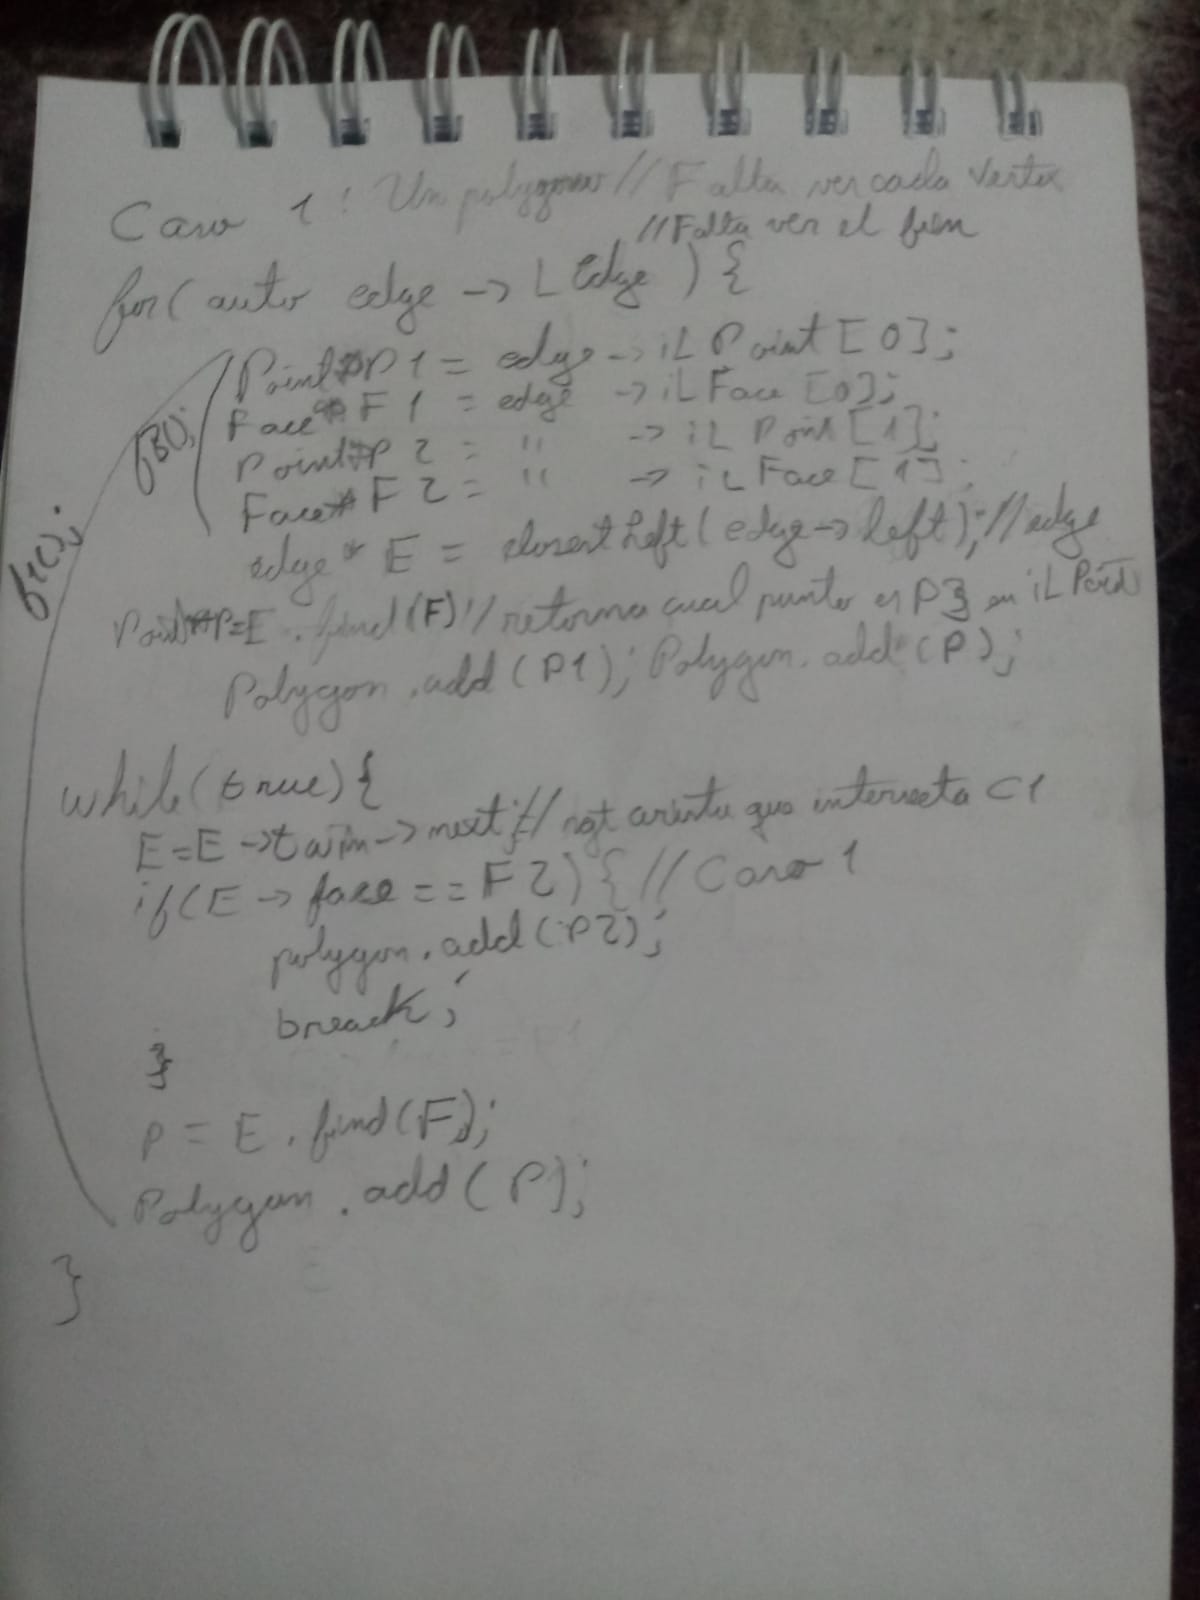 Caso 1: Un polygono // Falta ver cada vertex
//Falta ver el fin
for( auto edge -> L Edge ) {
Point* P1 = edge -> iL Point [0];
Face* F1 = edge -> iL Face [0];
Point* P2 = " -> iL Point [1];
Face* F2 = " -> iL Face [1];
fB();
edge * E = closestLeft(edge->left);//edge
f1C();
Point* P=E.find(F)//retorna cual punto es P3 en iL Point
Polygon.add(P1); Polygon.add(P);
while(true){
E=E->twin->next;// arista que intersecta C1
if(E -> face == F2) { // Caso 1
polygon.add(P2);
breack;
}
P = E.find(F);
Polygon.add(P);
}